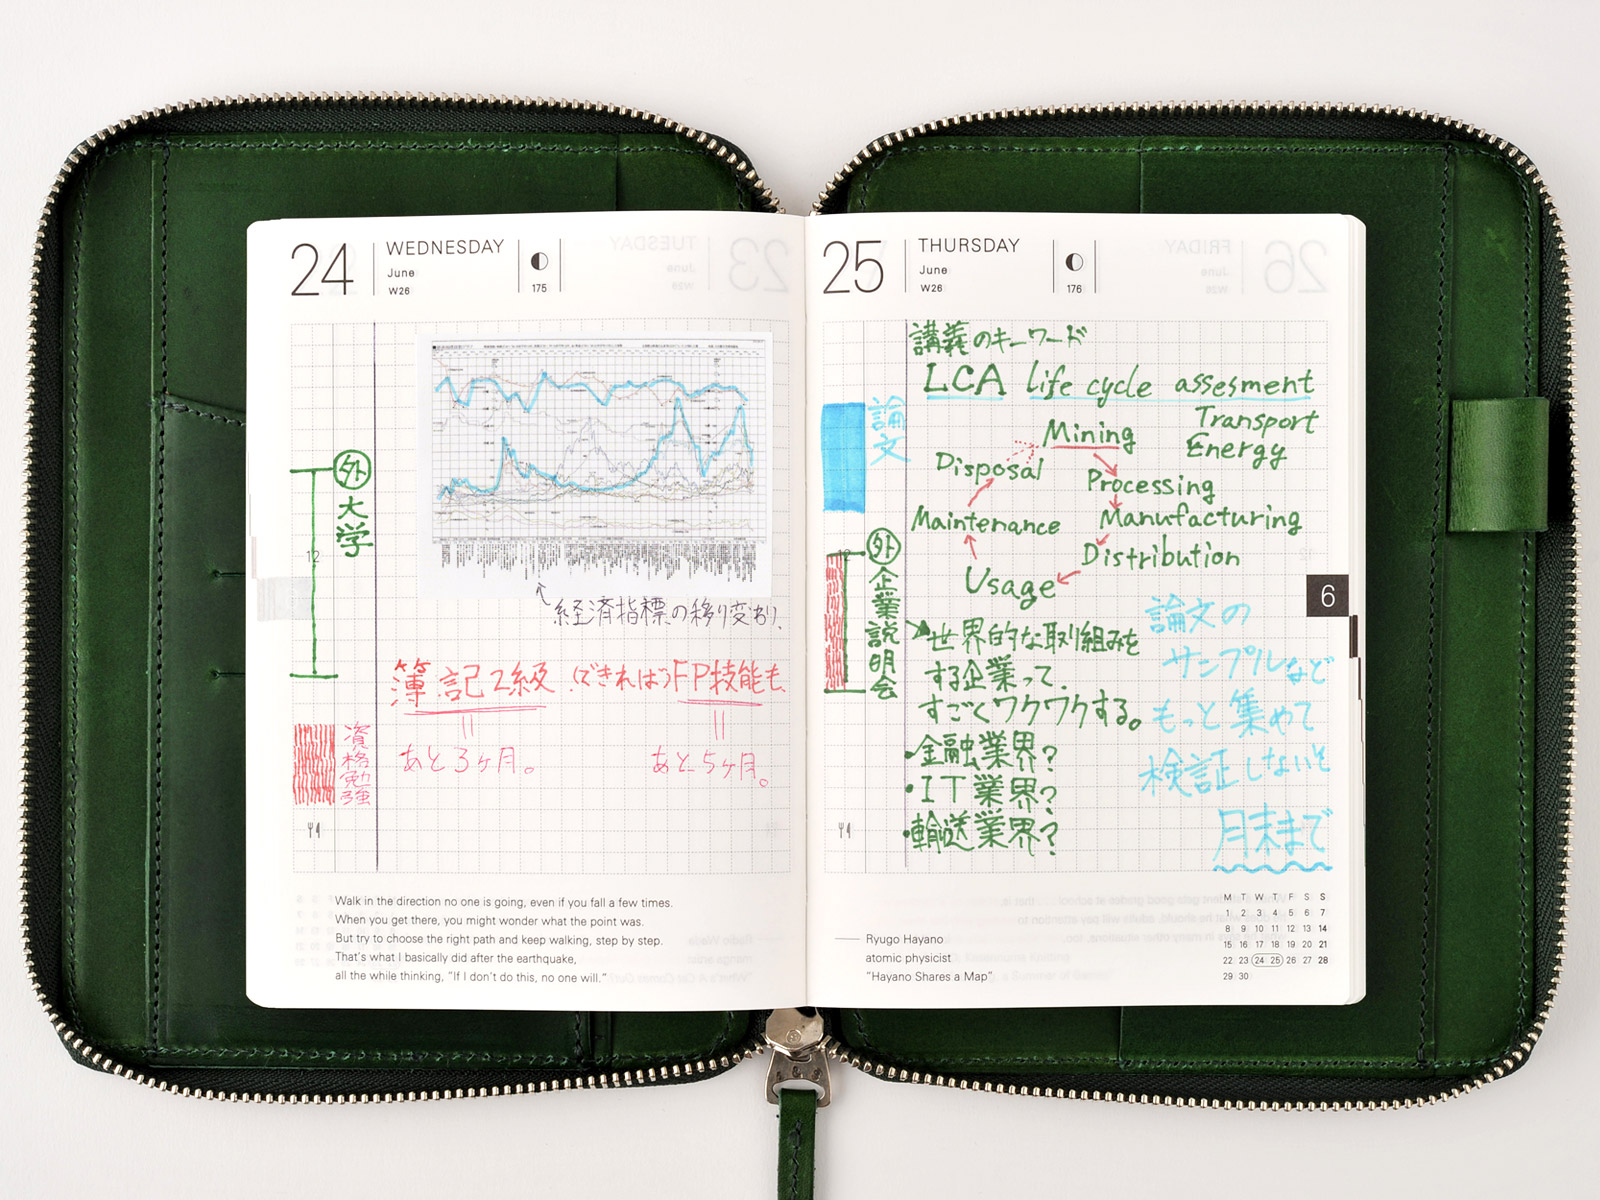 24
WEDNESDAY
June
W26
175
外
大学
12
経済指標の移り変わり、
簿記2級 (できれば)FP技能も、
あと3ヶ月。
あと5ヶ月。
資格勉強
Walk in the direction no one is going, even if you fall a few times.
When you get there, you might wonder what the point was.
But try to choose the right path and keep walking, step by step.
That's what I basically did after the earthquake,
all the while thinking, "If I don't do this, no one will."
25
THURSDAY
June
W26
176
講義のキーワード
LCA life cycle assesment
論文
Transport
Energy
Mining
Disposal
Processing
Maintenance
Manufacturing
Distribution
Usage
12
外
企業説明会
世界的な取り組みを
する企業って、
すごくワクワクする。
・金融業界?
・IT業界?
・輸送業界?
論文の
サンプルなど
もっと集めて
検証しないと
月末まで
6
Ryugo Hayano
atomic physicist
"Hayano Shares a Map"
M T W T F S S
1 2 3 4 5 6 7
8 9 10 11 12 13 14
15 16 17 18 19 20 21
22 23 24 25 26 27 28
29 30